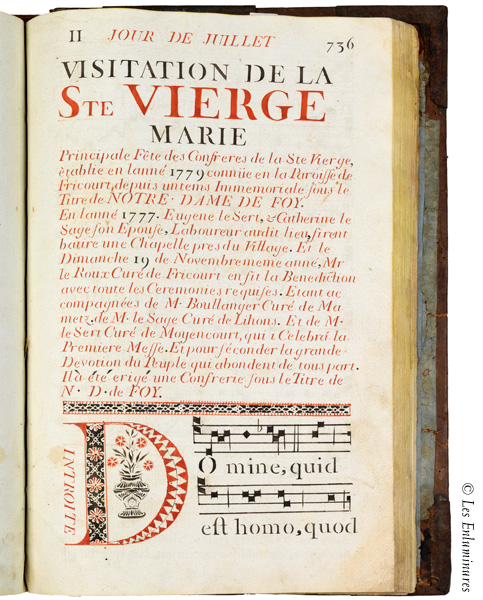 II JOUR DE JUILLET 736
VISITATION DE LA
STE VIERGE
MARIE
Principale Fête des Confreres de la Ste Vierge,
ètablie en lanné 1779 connüe en la Paroisse de
Fricourt, depuis un tems Immemoriale sous le
Titre de NOTRE · DAME DE FOY.
En lanné 1777. Eugene le Sert, & Catherine le
Sage son Epouse, Laboureur audit lieu, firent
batire une Chapelle pres du Village. Et le
Dimanche 19 de Novembre meme anné, Mr
le Roux Curé de Fricourt en fit la Benediction
avec toute les Ceremonies requises. Etant ac
compagnées de M· Boullanger Curé de Ma
metz, de M· le Sage Curé de Lihons. Et de M·
le Sert Curé de Moyencourt, qui i Celebrá la
Premiere Messe. Et pour féconder la grande
Devotion du Peuple qui abondent de tous part.
Il à été erigé une Confrerie sous le Titre de
N · D · de FOY.
INTROITE
DOmine, quid
est homo, quod
© Les Enluminures